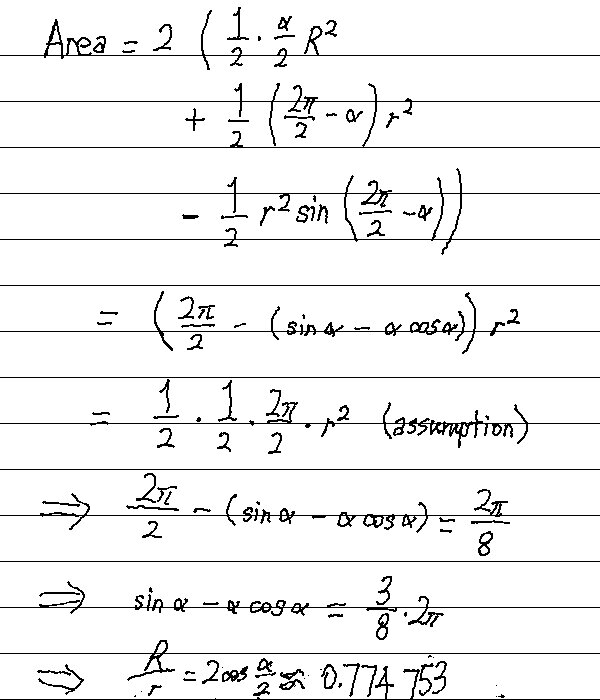 Area = 2 ( 1/2 · α/2 R²
+ 1/2 ( 2π/2 - α ) r²
- 1/2 r² sin ( 2π/2 - α ) )
= ( 2π/2 - (sin α - α cos α) ) r²
= 1/2 · 1/2 · 2π/2 · r² (assumption)
⇒ 2π/2 - (sin α - α cos α) = 2π/8
⇒ sin α - α cos α = 3/8 · 2π
⇒ R/r = 2 cos α/2 ≈ 0.774 753